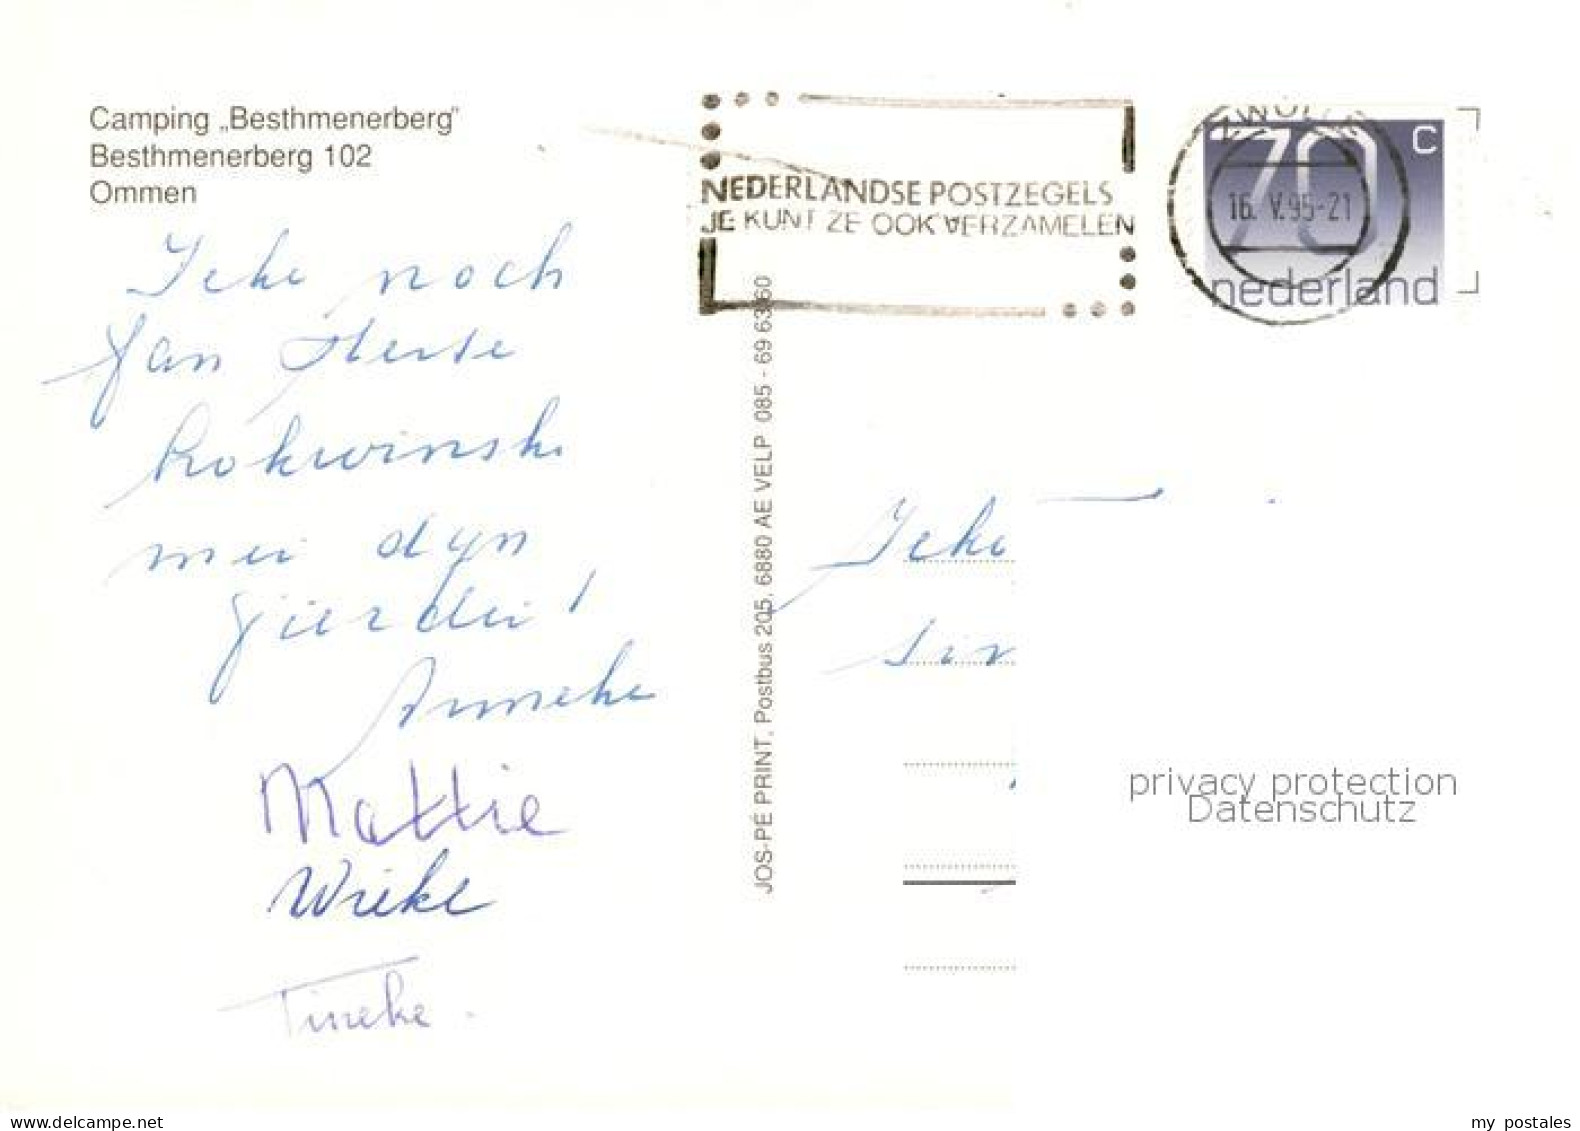 Camping „Besthmenerberg"
Besthmenerberg 102
Ommen
Jeke noch
fan herte
lokwinske
mei dyn
jierdei!
Anneke
Mattie
Wieke
Tineke.
NEDERLANDSE POSTZEGELS
JE KUNT ZE OOK VERZAMELEN
ZWOLLE
16. V.95-21
70 C
nederland
JOS-PÉ PRINT, Postbus 205, 6880 AE VELP 085 - 69 63 60
Jeke
privacy protection
Datenschutz
my postales